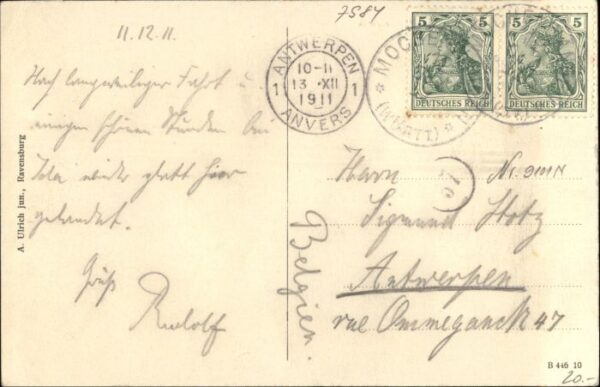 7584
11.12.11.
Nach langweiliger Fahrt u.
einigen schönen Stunden
wieder glatt hier
gelandet.
Gruß
Rudolf
A. Ulrich jun., Ravensburg
ANTWERPEN
1 10-11 1
13 XII
1911
ANVERS
(WÜRTT.)
5 5
DEUTSCHES REICH
5 5
DEUTSCHES REICH
Herrn
Sigmund Stotz
Antwerpen
rue Ommeganck 47
Belgien.
B 446 10
20.-